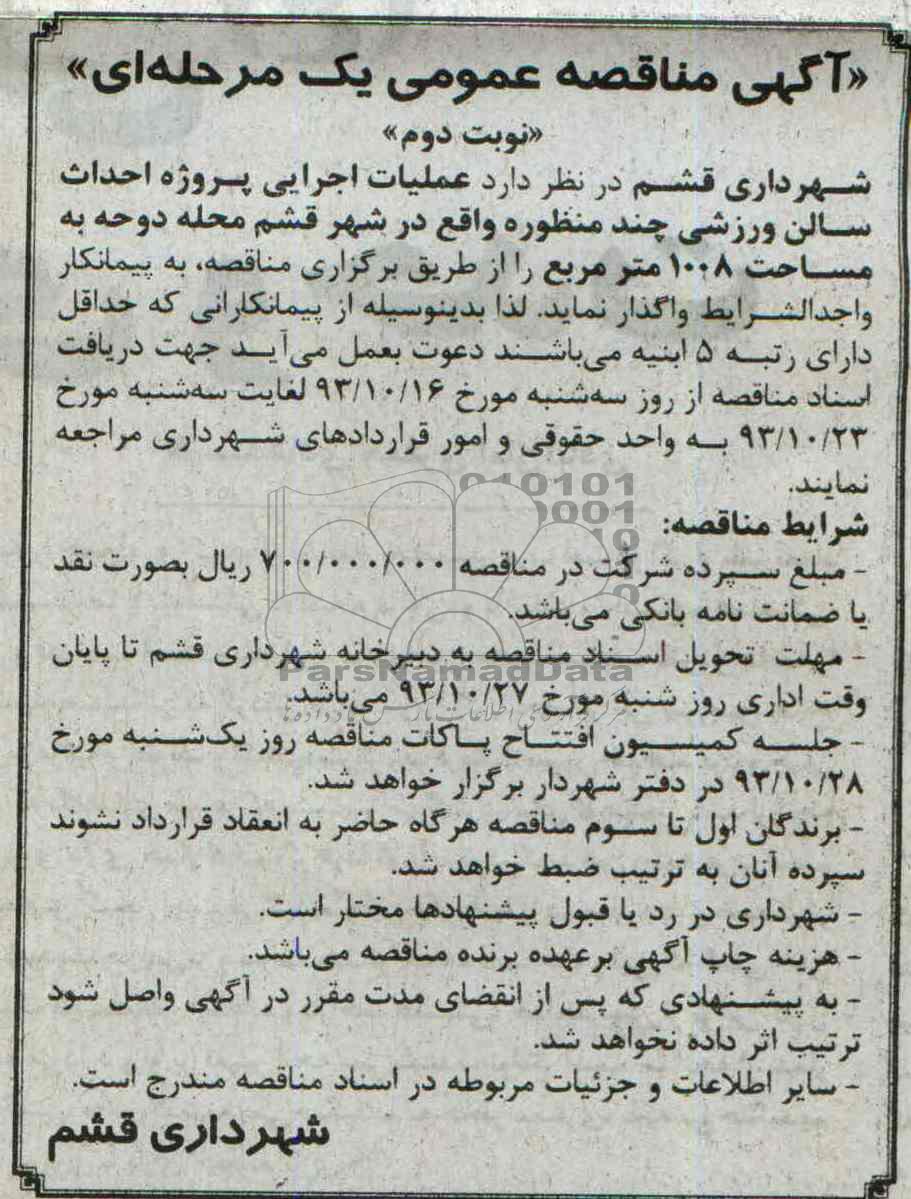 «آگهی مناقصه عمومی یک مرحله‌ای»
«نوبت دوم»
شهرداری قشم در نظر دارد عملیات اجرایی پروژه احداث
سالن ورزشی چند منظوره واقع در شهر قشم محله دوحه به
مساحت ۱۰۰۸ متر مربع را از طریق برگزاری مناقصه، به پیمانکار
واجدالشرایط واگذار نماید. لذا بدینوسیله از پیمانکارانی که حداقل
دارای رتبه ۵ ابنیه می‌باشند دعوت بعمل می‌آید جهت دریافت
اسناد مناقصه از روز سه‌شنبه مورخ ۹۳/۱۰/۱۶ لغایت سه‌شنبه مورخ
۹۳/۱۰/۲۳ به واحد حقوقی و امور قراردادهای شهرداری مراجعه
نمایند.
شرایط مناقصه:
- مبلغ سپرده شرکت در مناقصه ۷۰۰/۰۰۰/۰۰۰ ریال بصورت نقد
یا ضمانت نامه بانکی می‌باشد.
- مهلت تحویل اسناد مناقصه به دبیرخانه شهرداری قشم تا پایان
ParsNamadData
وقت اداری روز شنبه مورخ ۹۳/۱۰/۲۷ می‌باشد.
- جلسه کمیسیون افتتاح پاکات مناقصه روز یک‌شنبه مورخ
۹۳/۱۰/۲۸ در دفتر شهردار برگزار خواهد شد.
- برندگان اول تا سوم مناقصه هرگاه حاضر به انعقاد قرارداد نشوند
سپرده آنان به ترتیب ضبط خواهد شد.
- شهرداری در رد یا قبول پیشنهادها مختار است.
- هزینه چاپ آگهی برعهده برنده مناقصه می‌باشد.
- به پیشنهادی که پس از انقضای مدت مقرر در آگهی واصل شود
ترتیب اثر داده نخواهد شد.
- سایر اطلاعات و جزئیات مربوطه در اسناد مناقصه مندرج است.
شهرداری قشم